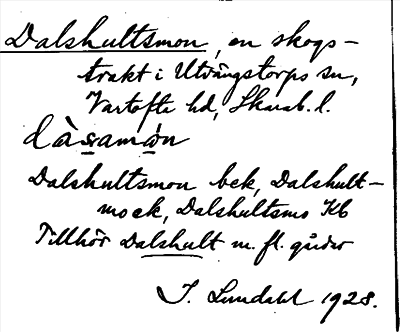 Dalshultsmon, en skogs-
trakt i Utvängstorps sn,
Vartofta hd, Skarab. l.
dàsamo̱n
Dalshultsmon bek, Dalshult-
mo ek, Dalshultsmo Kb
Tillhör Dalshult m. fl. gårdar
I. Lundahl 1928.